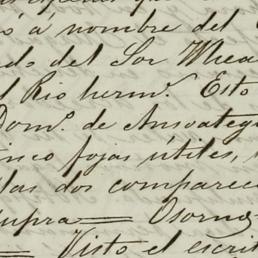 ó á nombre del
do del Sor Whea
l Rio hermº. Esto
Domº. de Ansoateg
inco fojas útiles,
las dos comparec
supra= Osorno
= Visto el escrit